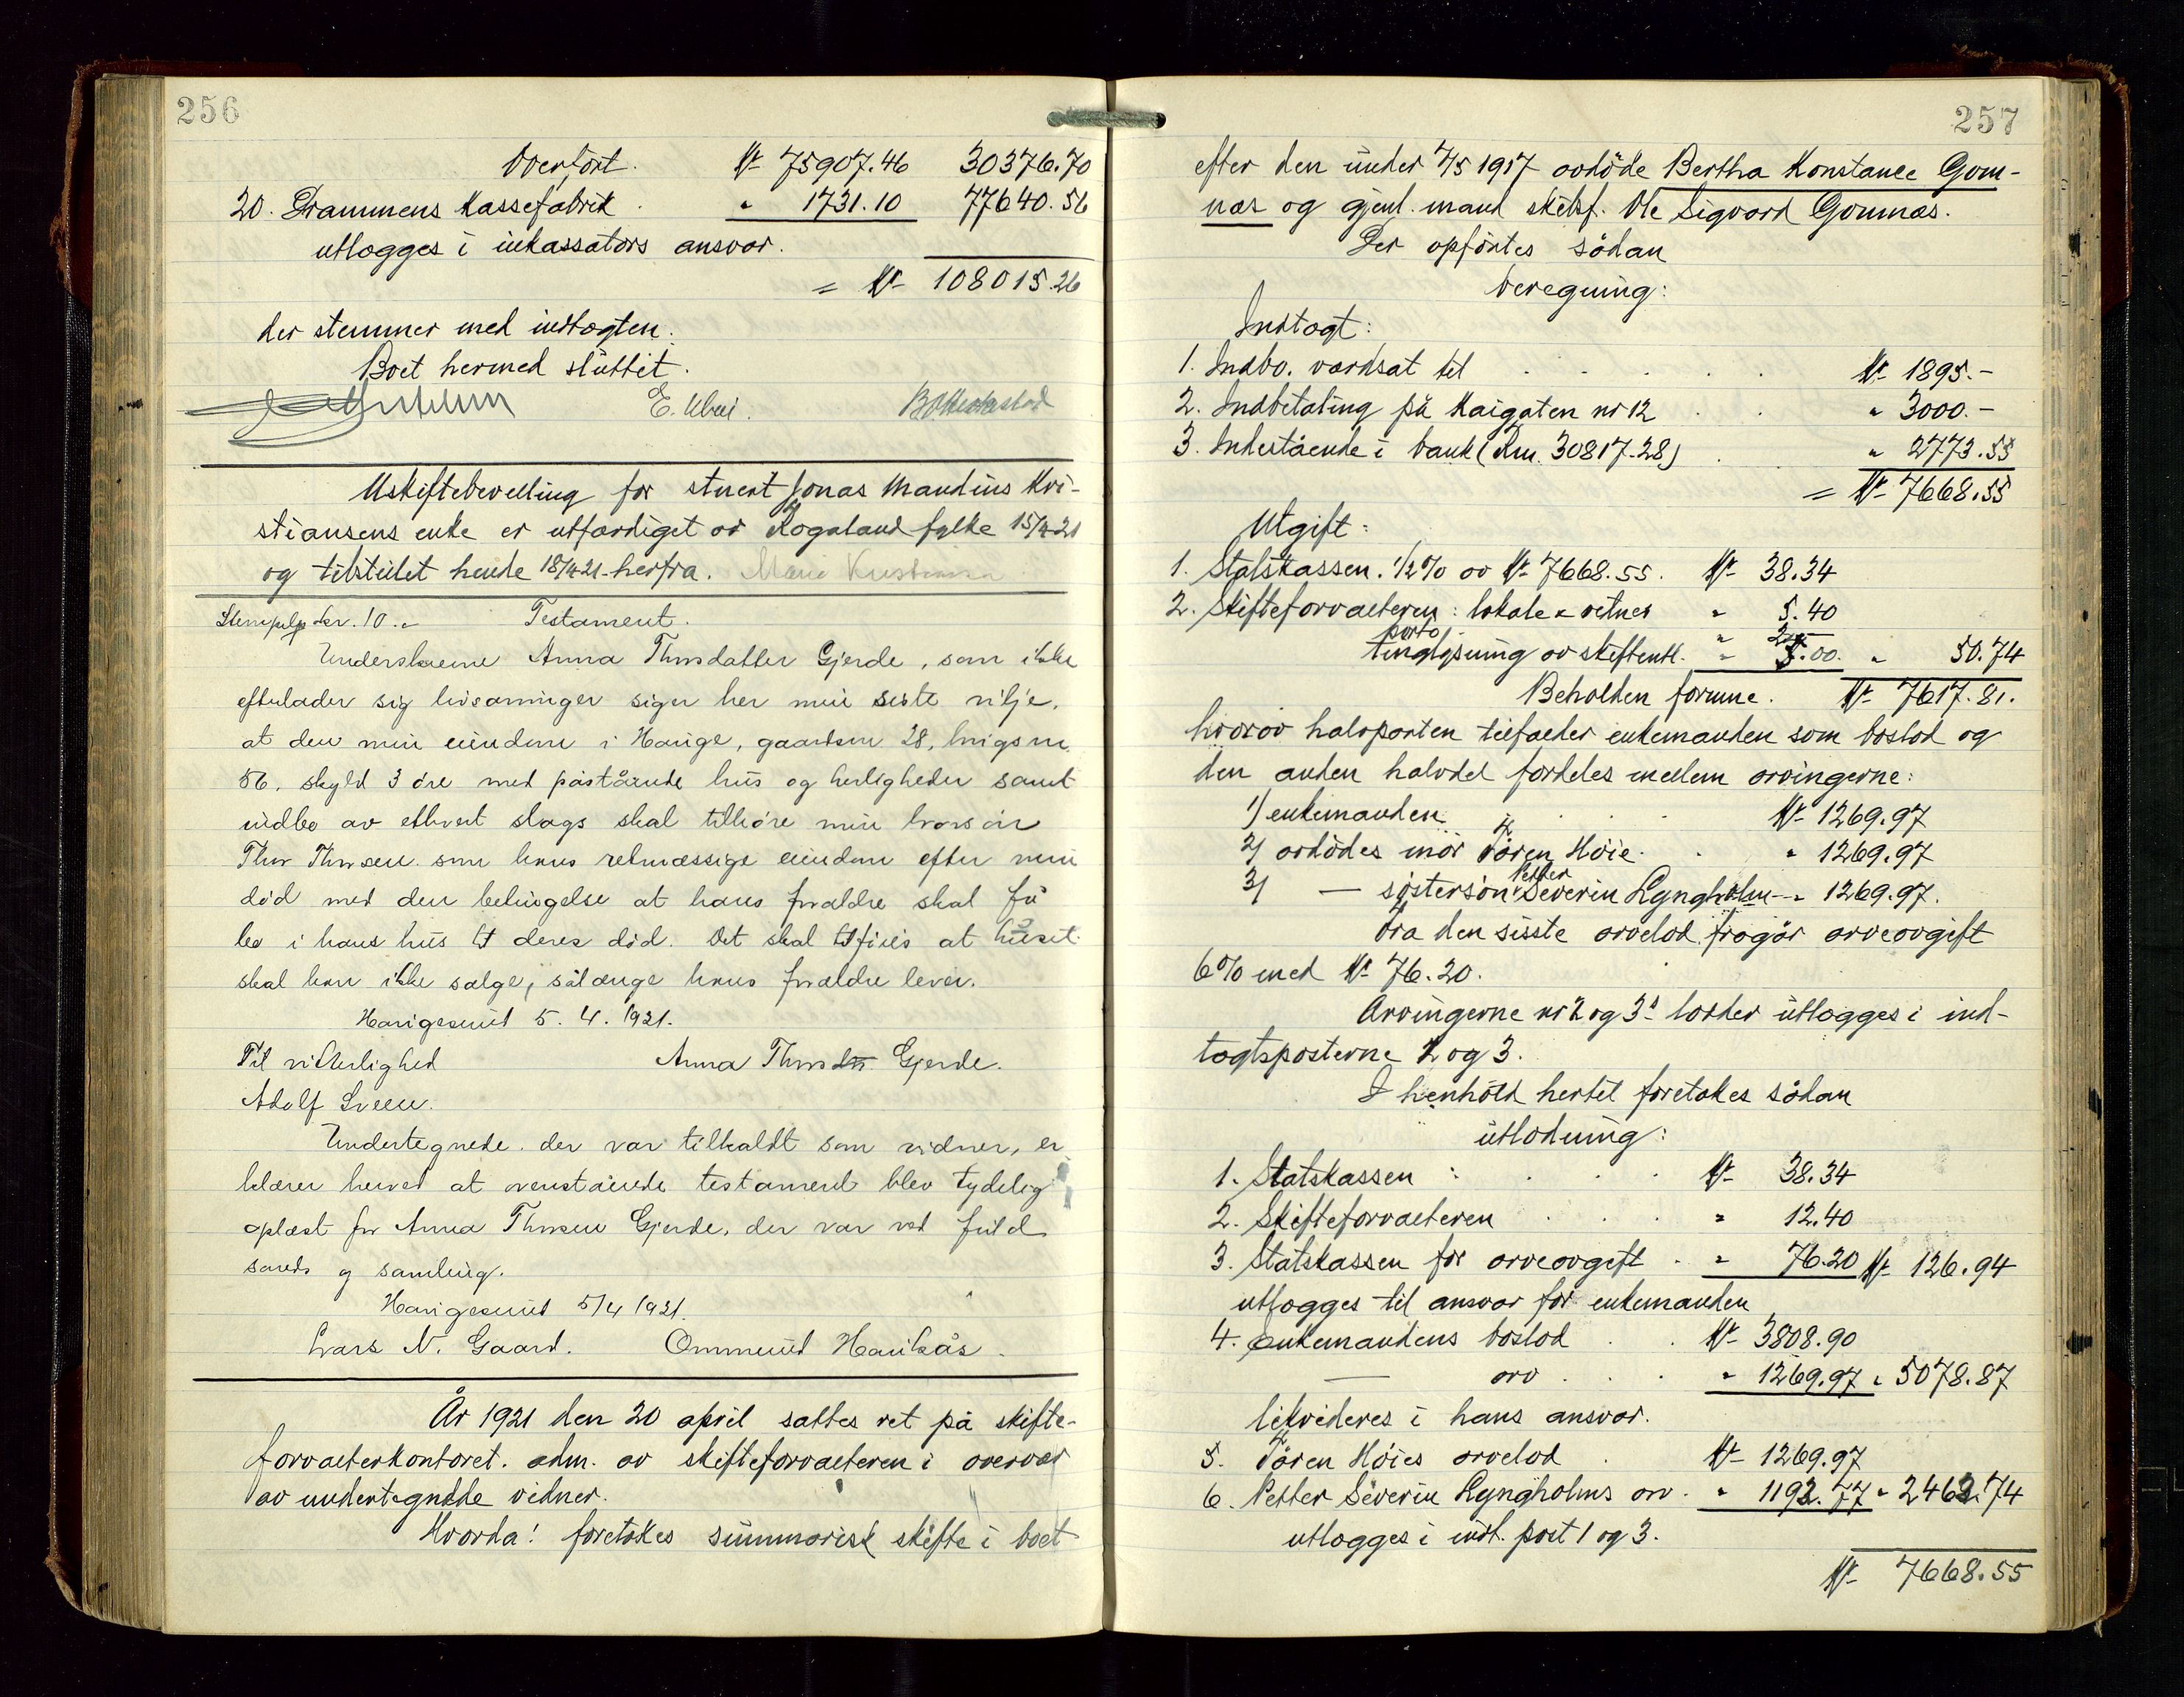 256
Overført. Kr 75907.46 30376.70
20. Drammens Kassefabrik . " 1731.10 77640.56
utlægges i inkassators ansvar.
= Kr 108015.26
der stemmer med indtægten.
Boet hermed sluttet.
E. Ubei.
Uskiftebevilling for stuert Jonas Maudius Kri-
stiansens enke er utfærdiget av Rogaland fylke 15/4 21
og tilstillet hende 18/4 21 herfra. Marie Kristiansen
Stempelp. kr. 10.- Testament.
Underskrevne Anna Thorsdatter Gjerde, som ikke
efterlader sig livsarvinger siger her min siste vilje,
at den min eiendom i Hauge, gaardsnr 28, brugsnr
56, skyld 3 øre med påstående hus og herligheder samt
indbo av ethvert slags skal tilhøre min brorsøn
Thor Thorsen som hans retmæssige eiendom efter min
død med den betingelse at hans forældre skal få
bo i hans hus til deres død. Det skal tilføies at huset
skal han ikke sælge, sålænge hans forældre lever.
Haugesund 5. 4. 1921.
Til vitterlighed Anna Thorsdtr. Gjerde.
Adolf Sveen.
Undertegnede, der var tilkaldt som vidner, er
klærer herved at ovenstående testament blev tydelig
oplæst for Anna Thorsen Gjerde, der var ved fuld
sands og samling.
Haugesund 5/4 1921.
Lars N. Gaard. Ommund Haukås.
År 1921 den 20 april sattes ret på skifte-
forvalterkontoret. adm. av skifteforvalteren i overvær
av undertegnede vidner.
Hvorda! foretokes summarisk skifte i boet
257
efter den under 7/5 1917 avdøde Bertha Konstance Gom-
næs og gjenl. mand skibsf. Ole Sigvard Gomnæs.
Der opførtes sådan
beregning:
Indtægt:
1. Indbo. værdsat til Kr 1895.-
2. Indbetaling på Kaigaten nr 12 " 3000.-
3. Indestående i bank (Rm. 30817.28) " 2773.55
= Kr 7668.55
Utgift:
1. Statskassen. 1/2% av Kr 7668.55. Kr 38.34
2. Skifteforvalteren: lokale & vitner " 5.40
porto " 2.-
tinglysning av skifteutl. " 5.00. " 50.74
Beholden formue. Kr 7617.81.
hvorav halvparten tilfalder enkemanden som boslod og
den anden halvdel fordeles mellem arvingerne:
1) enkemanden Kr 1269.97
2) avdødes mor Tøren Høie. " 1269.97
3) — søstersøn Petter Severin Lyngholm — " 1269.97.
Fra den sisste arvelod fragår arveavgift
6% med Kr 76.20.
Arvingerne nr 2 og 3s lodder utlægges i ind-
tægtsposterne 1 og 3.
I henhold hertil foretokes sådan
utlodning:
1. Statskassen : Kr 38.34
2. Skifteforvalteren " 12.40
3. Statskassen for arveavgift . " 76.20 Kr 126.94
utlægges til ansvar for enkemanden
4. Enkemandens boslod Kr 3808.90
— arv . " 1269.97 " 5078.87
likvideres i hans ansvar.
5. Tøren Høies arvelod Kr 1269.97
6. Petter Severin Lyngholms arv. " 1192.77 " 2462.74
utlægges i indt. post 1 og 3.
Kr 7668.55